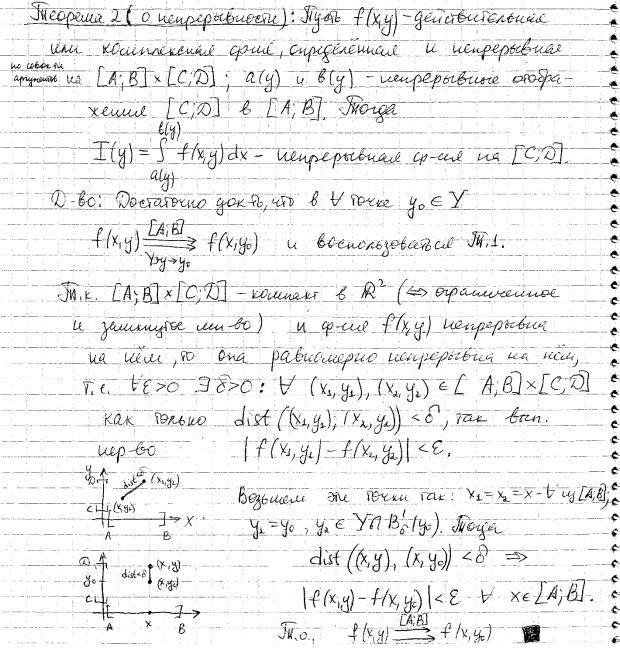 Теорема 2 (о непрерывности): Пусть f(x,y) - действительная
или комплексная ф-ция, определённая и непрерывная
по совок-ти аргументов на [A;B]×[C;D]; a(y) и b(y) - непрерывные отобра-
жения [C;D] в [A;B]. Тогда
I(y) = ∫_{a(y)}^{b(y)} f(x,y)dx - непрерывная ф-ция на [C;D].
Д-во: Достаточно док-ть, что в ∀ точке y₀ ∈ Y
f(x,y) [A;B] ⇉ Y∋y→y₀ f(x,y₀) и воспользоваться Т.1.
Т.к. [A;B]×[C;D] - компакт в ℝ² (⇔ ограниченное
и замкнутое мн-во) и ф-ция f(x,y) непрерывна
на нём, то она равномерно непрерывна на нём,
т.е. ∀ε>0 ∃δ>0: ∀ (x₁,y₁), (x₂,y₂) ∈ [A;B]×[C;D]
как только dist((x₁,y₁);(x₂,y₂)) < δ, так вып.
нер-во |f(x₁,y₁) - f(x₂,y₂)| < ε.
y D C A B x dist<δ (x₂,y₂) (x₁,y₁)
Возьмем эти точки так: x₁=x₂=x - ∀ из [A;B];
y₁=y₀, y₂ ∈ Y∩B'_δ(y₀). Тогда
dist((x,y), (x,y₀)) < δ ⇒
D y₀ C A x B dist<δ (x,y) (x,y₀)
|f(x,y) - f(x,y₀)| < ε ∀ x∈[A;B].
Т.о., f(x,y) [A;B] ⇉ f(x,y₀)